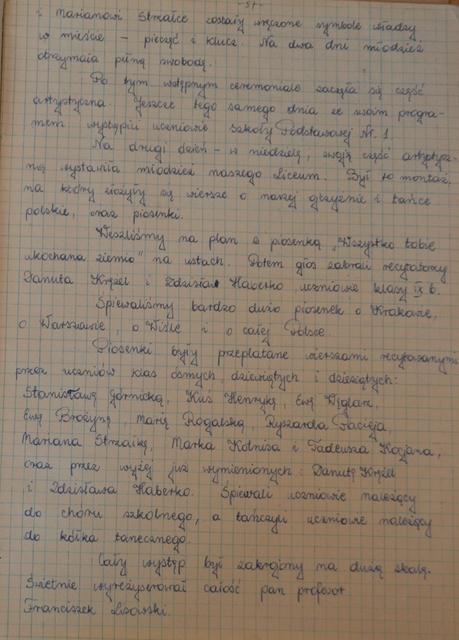 - 57 -
i Marianowi Strzałce zostały wręczone symbole władzy
w mieście - pieczęć i klucz. Na dwa dni młodzież
otrzymała pełną swobodę.
Po tym wstępnym ceremoniale zaczęła się część
artystyczna. Jeszcze tego samego dnia ze swoim progra-
mem wystąpili uczniowie Szkoły Podstawowej Nr 1
Na drugi dzień - w niedzielę, swoją część artystycz-
ną wystawiła młodzież naszego Liceum. Był to montaż,
na który złożyły się wiersze o naszej ojczyźnie i tańce
polskie, oraz piosenki.
Weszliśmy na plan z piosenką „Wszystko tobie
ukochana ziemio" na ustach. Potem głos zabrali recytatorzy
Danuta Kryzel i Zdzisław Haberko uczniowie klasy IX b.
Śpiewaliśmy bardzo dużo piosenek o Krakowie,
o Warszawie, o Wiśle i o całej Polsce.
Piosenki były przeplatane wierszami recytowanymi
przez uczniów klas ósmych, dziewiątych i dziesiątych:
Stanisławę Górnicką, Kuś Henrykę, Ewę Węglarz,
Ewę Brożynę, Marię Rogalską, Ryszarda
Mariana Strzałkę, Marka i Tadeusza Kocjana,
oraz przez wyżej już wymienionych: Danutę Kryzel
i Zdzisława Haberko. Śpiewali uczniowie należący
do chóru szkolnego, a tańczyli uczniowie należący
do kółka tanecznego.
Cały występ był zakrojony na dużą skalę.
Świetnie wyreżyserował całość pan profesor
Franciszek Lisowski.